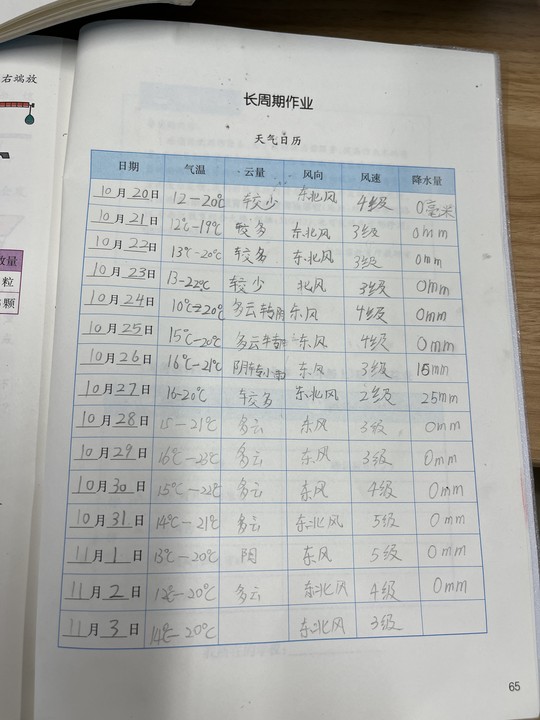 右端放
数量
粒
颗
长周期作业
天气日历
日期 气温 云量 风向 风速 降水量
10月20日 12-20℃ 较少 东北风 4级 0毫米
10月21日 12℃-19℃ 较多 东北风 3级 0mm
10月22日 13℃-20℃ 较多 东北风 3级 0mm
10月23日 13-22℃ 较少 北风 3级 0mm
10月24日 10℃-20℃ 多云转阴 东风 4级 0mm
10月25日 15℃-20℃ 多云 东风 4级 0mm
10月26日 16℃-21℃ 阴转小雨 东风 3级 15mm
10月27日 16-20℃ 较多 东北风 2级 25mm
10月28日 15-21℃ 多云 东风 3级 0mm
10月29日 16℃-23℃ 多云 东风 3级 0mm
10月30日 15℃-22℃ 多云 东风 4级 0mm
10月31日 14℃-21℃ 多云 东北风 5级 0mm
11月1日 13℃-20℃ 阴 东风 5级 0mm
11月2日 12℃-20℃ 多云 东北风 4级 0mm
11月3日 14℃-20℃ 东北风 3级
65